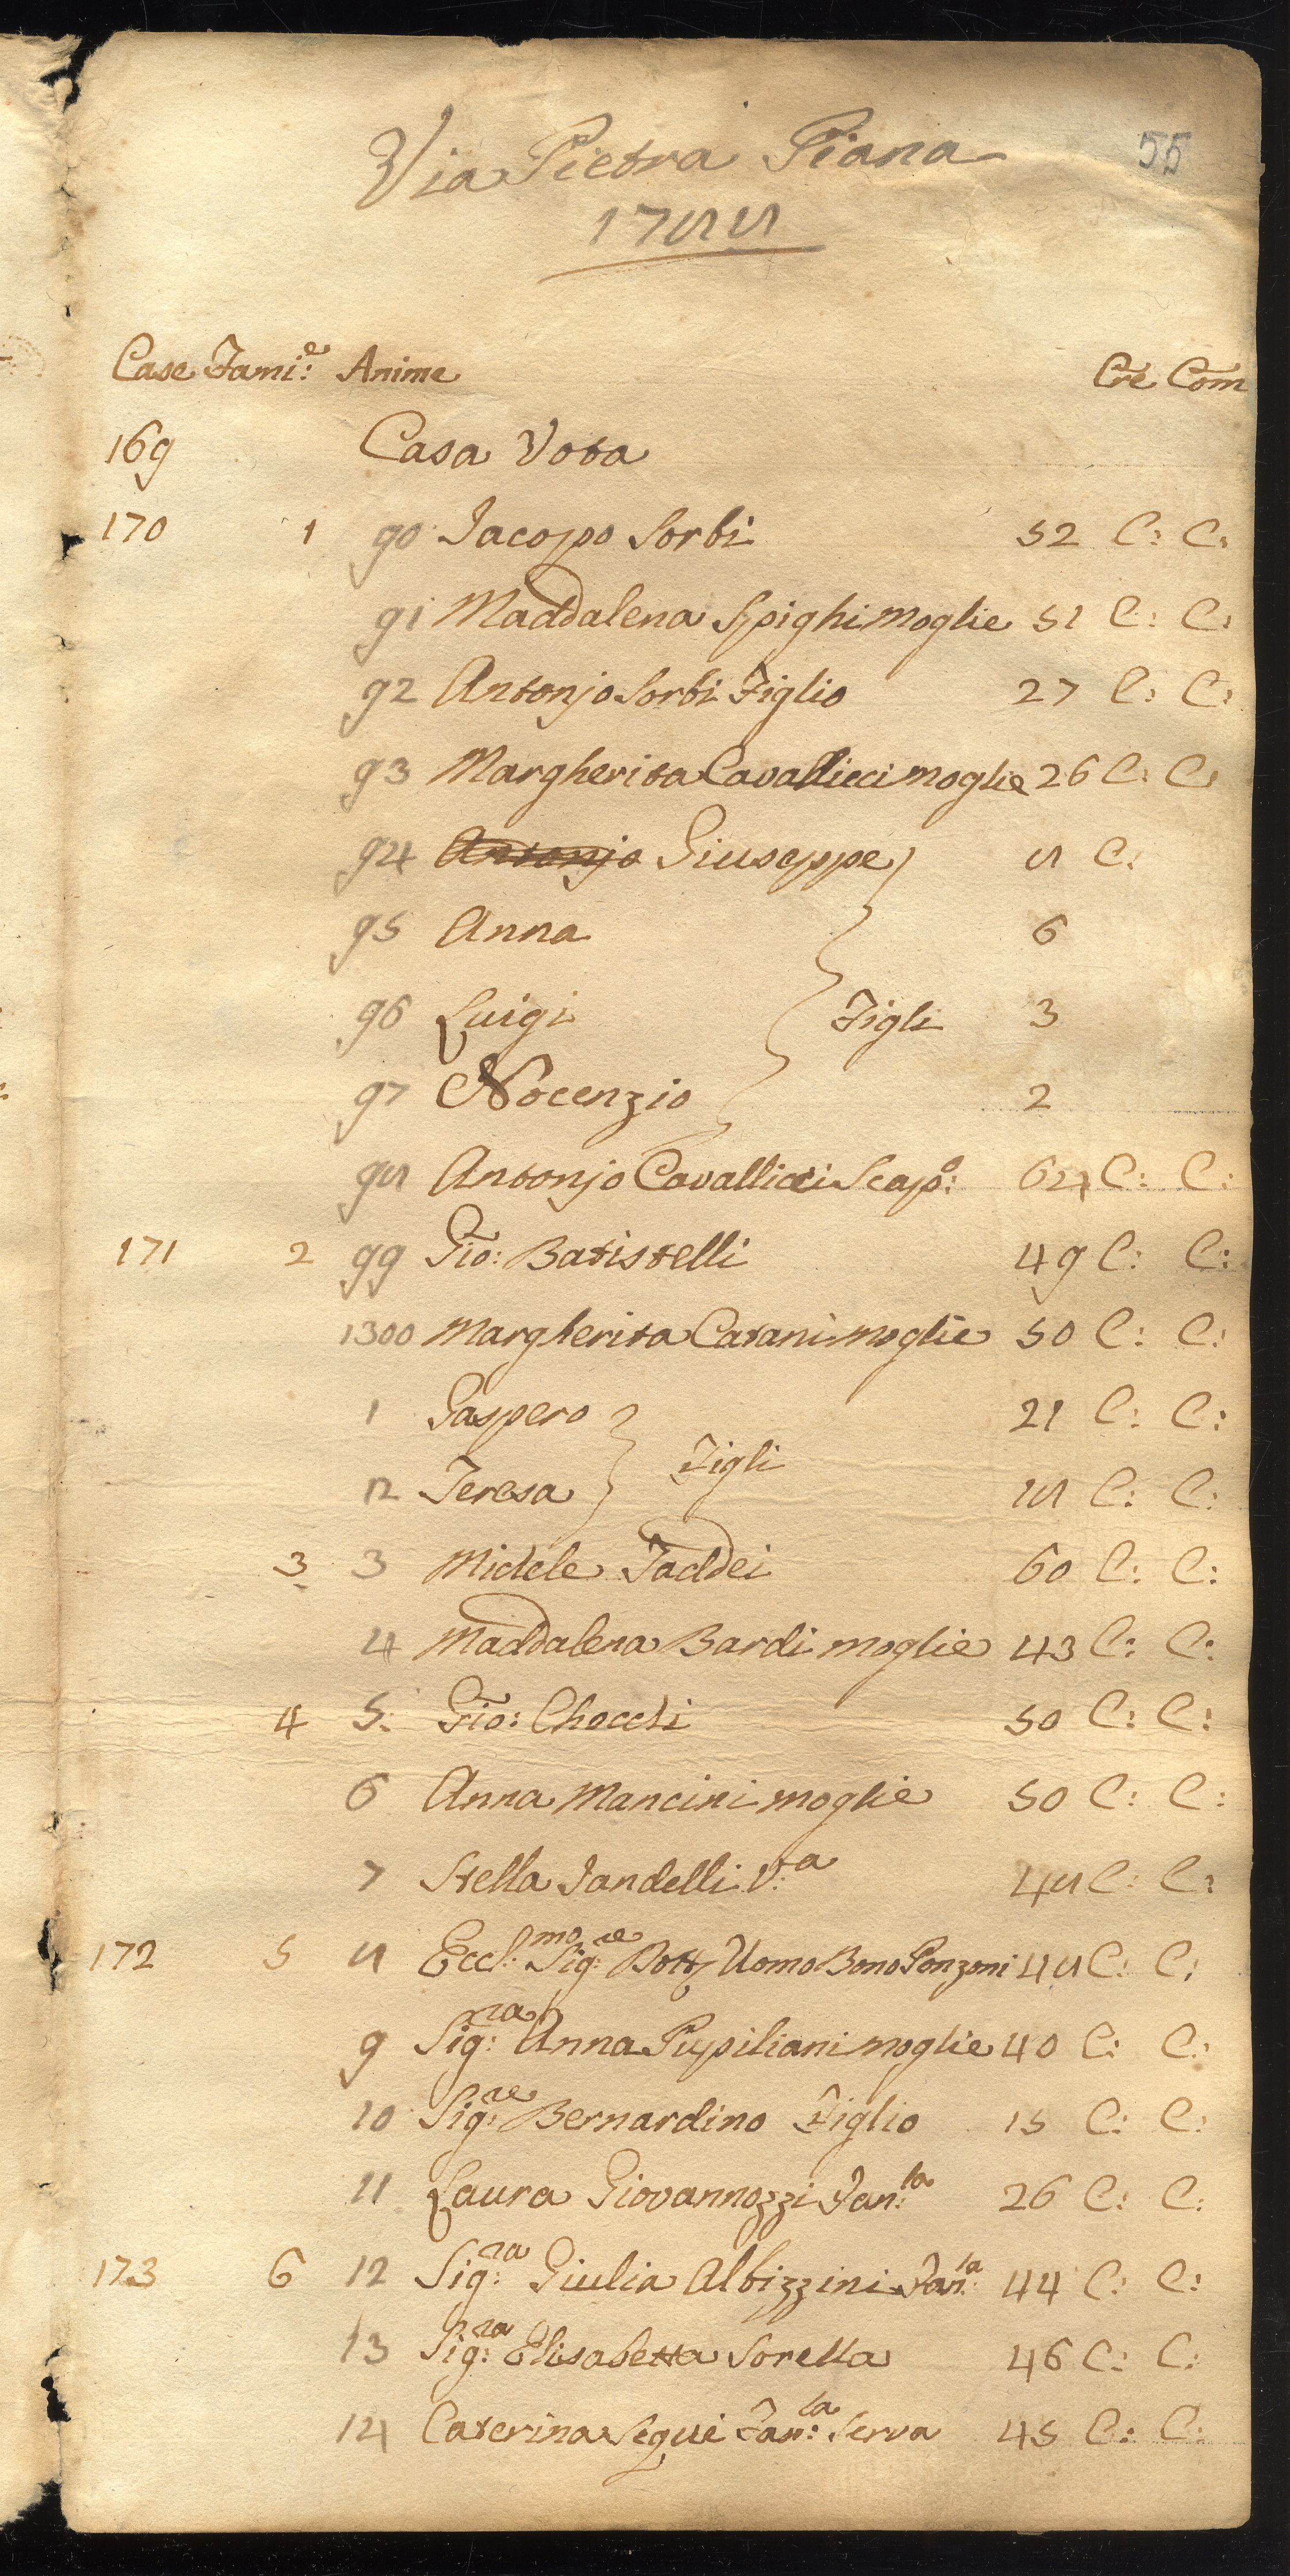 Via Pietra Piana
55
1788
Case Fami:e Anime Cre Com
169 Casa Vota
170 1 90 Jacopo Sorbi 52 C: C:
91 Maddalena Spighi moglie 51 C: C:
92 Antonjo Sorbi Figlio 27 C: C:
93 Margherita Cavallicci moglie 26 C: C:
94 Antonjo Giuseppe 8 C:
95 Anna 6
96 Luigi Figli 3
97 Nocenzio 2
98 Antonjo Cavallicci Scap:o 64 C: C:
171 2 99 Gio: Batistelli 49 C: C:
1300 Margherita Catani moglie 50 C: C:
1 Gaspero 21 C: C:
Figli
2 Teresa 18 C: C:
3 3 Michele Taddei 60 C: C:
4 Maddalena Bardi moglie 43 C: C:
4 5: Gio: Checchi 50 C: C:
6 Anna Mancini moglie 50 C: C:
7 Stella Landelli V:a 48 C: C:
172 5 8 Eccl:mo Sig:re Dott Uomo Bono Ponzoni 48 C: C:
9 Sig:ra Anna Pupiliani moglie 40 C: C:
10 Sig:re Bernardino Figlio 15 C: C:
11 Laura Giovannozzi Fan:la 26 C: C:
173 6 12 Sig:ra Giulia Albizzini Fan:la 44 C: C:
13 Sig:ra Elisabetta Sorella 46 C: C:
14 Caterina Segui Fan:la Serva 45 C: C: